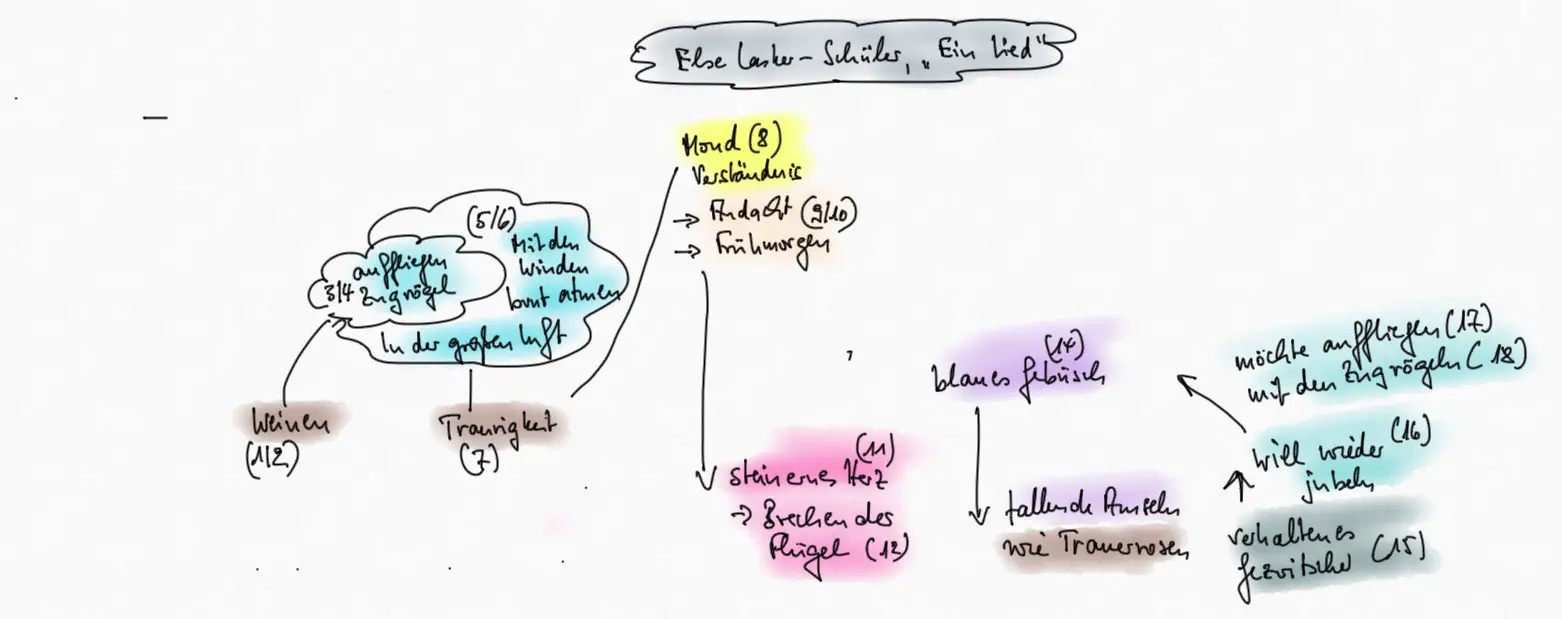 Else Lasker-Schüler, „Ein Lied"
Mond (8)
Verständnis
→ Andacht (9/10)
→ Frühmorgen
(5/6)
Mit den
Winden
bunt atmen
auffliegen
3/4 Zugvögel
In der großen Luft
Weinen
(1/2)
Traurigkeit
(7)
(11)
steinernes Herz
→ Brechen des
Flügel (12)
(14)
blaues Gebüsch
fallende Amseln
wie Trauerrosen
möchte auffliegen (17)
mit den Zugvögeln (18)
will wieder (16)
jubeln
verhaltenes
Gezwitscher (15)